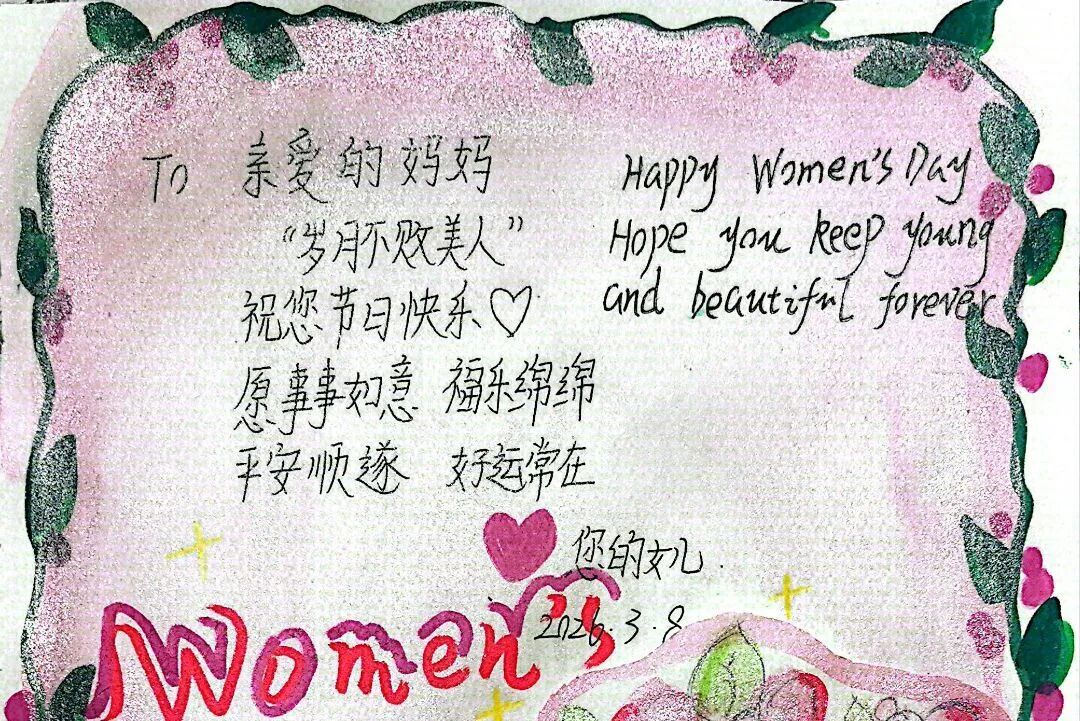 To 亲爱的妈妈
“岁月不败美人”
祝您节日快乐♡
愿事事如意 福乐绵绵
平安顺遂 好运常在
你的女儿.
2026.3.8
Happy Women's Day
Hope you keep young
and beautiful forever
Women's